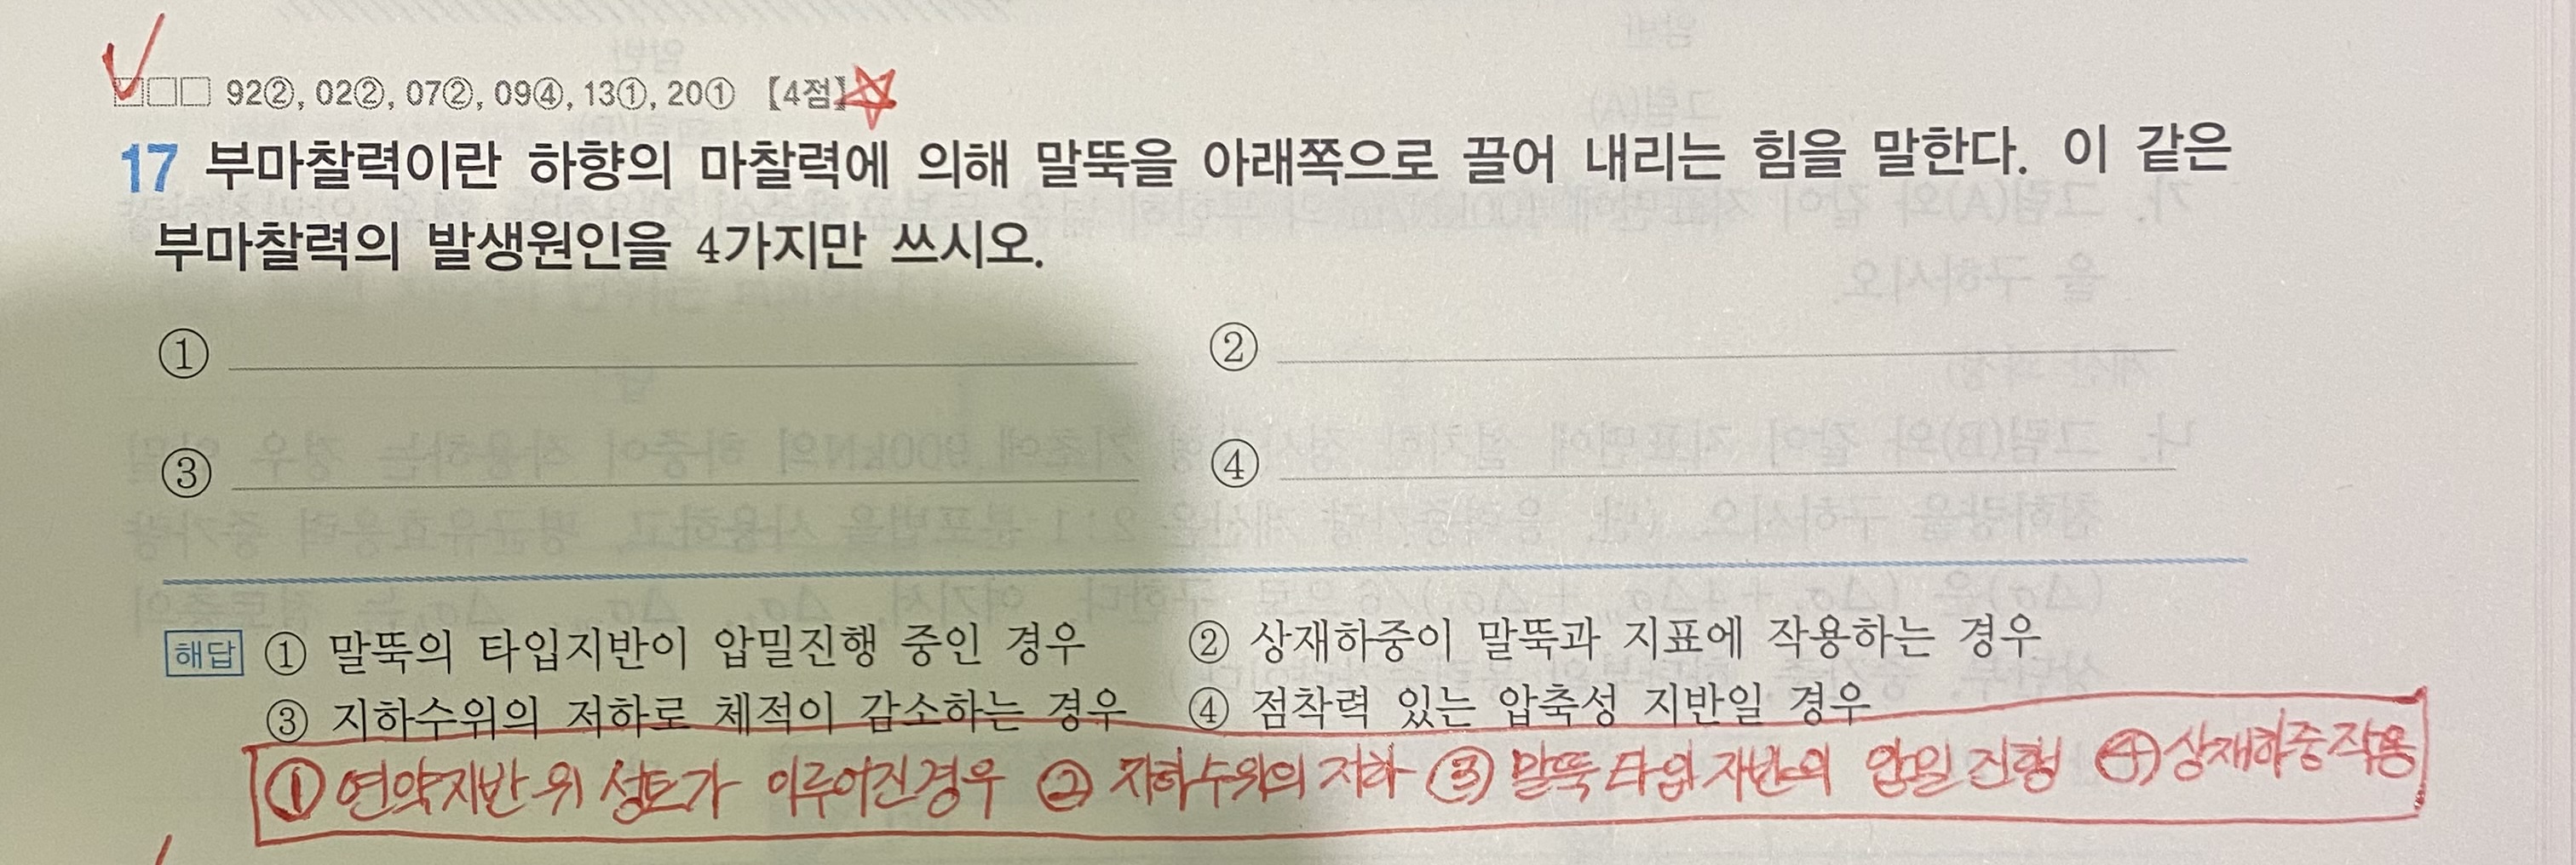 92②, 02②, 07②, 09④, 13①, 20① 【4점】
17 부마찰력이란 하향의 마찰력에 의해 말뚝을 아래쪽으로 끌어 내리는 힘을 말한다. 이 같은
부마찰력의 발생원인을 4가지만 쓰시오.
① ②
③ ④
해답 ① 말뚝의 타입지반이 압밀진행 중인 경우 ② 상재하중이 말뚝과 지표에 작용하는 경우
③ 지하수위의 저하로 체적이 감소하는 경우 ④ 점착력 있는 압축성 지반일 경우
① 연약지반 위 성토가 이루어진경우 ② 지하수위의 저하 ③ 말뚝 타입 지반의 압밀 진행 ④ 상재하중작용